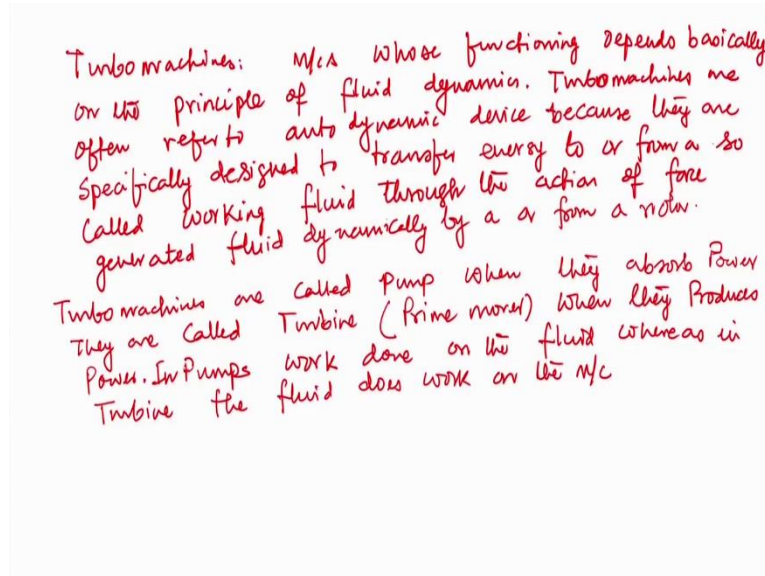 Turbomachines: M/cs whose functioning Depends basically
on the principle of fluid dynamics. Turbomachines are
often refer to auto dynamic device because they are
specifically designed to transfer energy to or from a so
called working fluid through the action of force
generated fluid dynamically by a or from a rotor.
Turbomachines are called Pump when they absorb Power
They are called Turbine (Prime mover) when they Produces
Power. In Pumps work done on the fluid whereas in
Turbine the fluid does work on the M/c